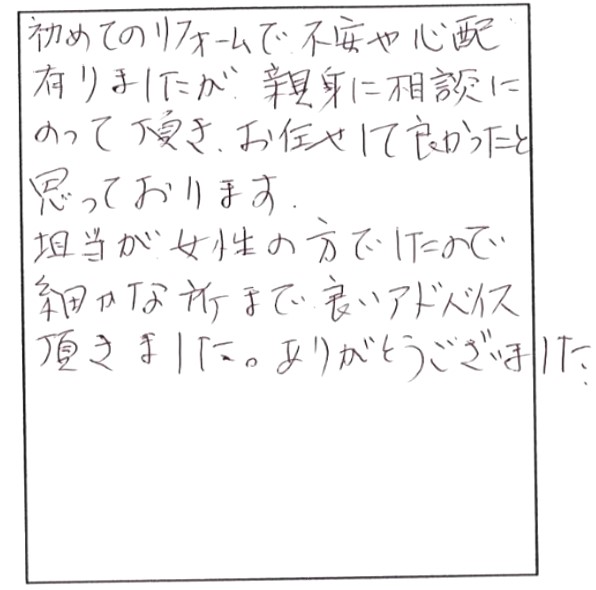 初めてのリフォームで不安や心配
有りましたが、親身に相談に
のって頂き、お任せして良かったと
思っております.
担当が女性の方でしたので
細かな所まで良いアドバイス
頂きました。ありがとうございました.